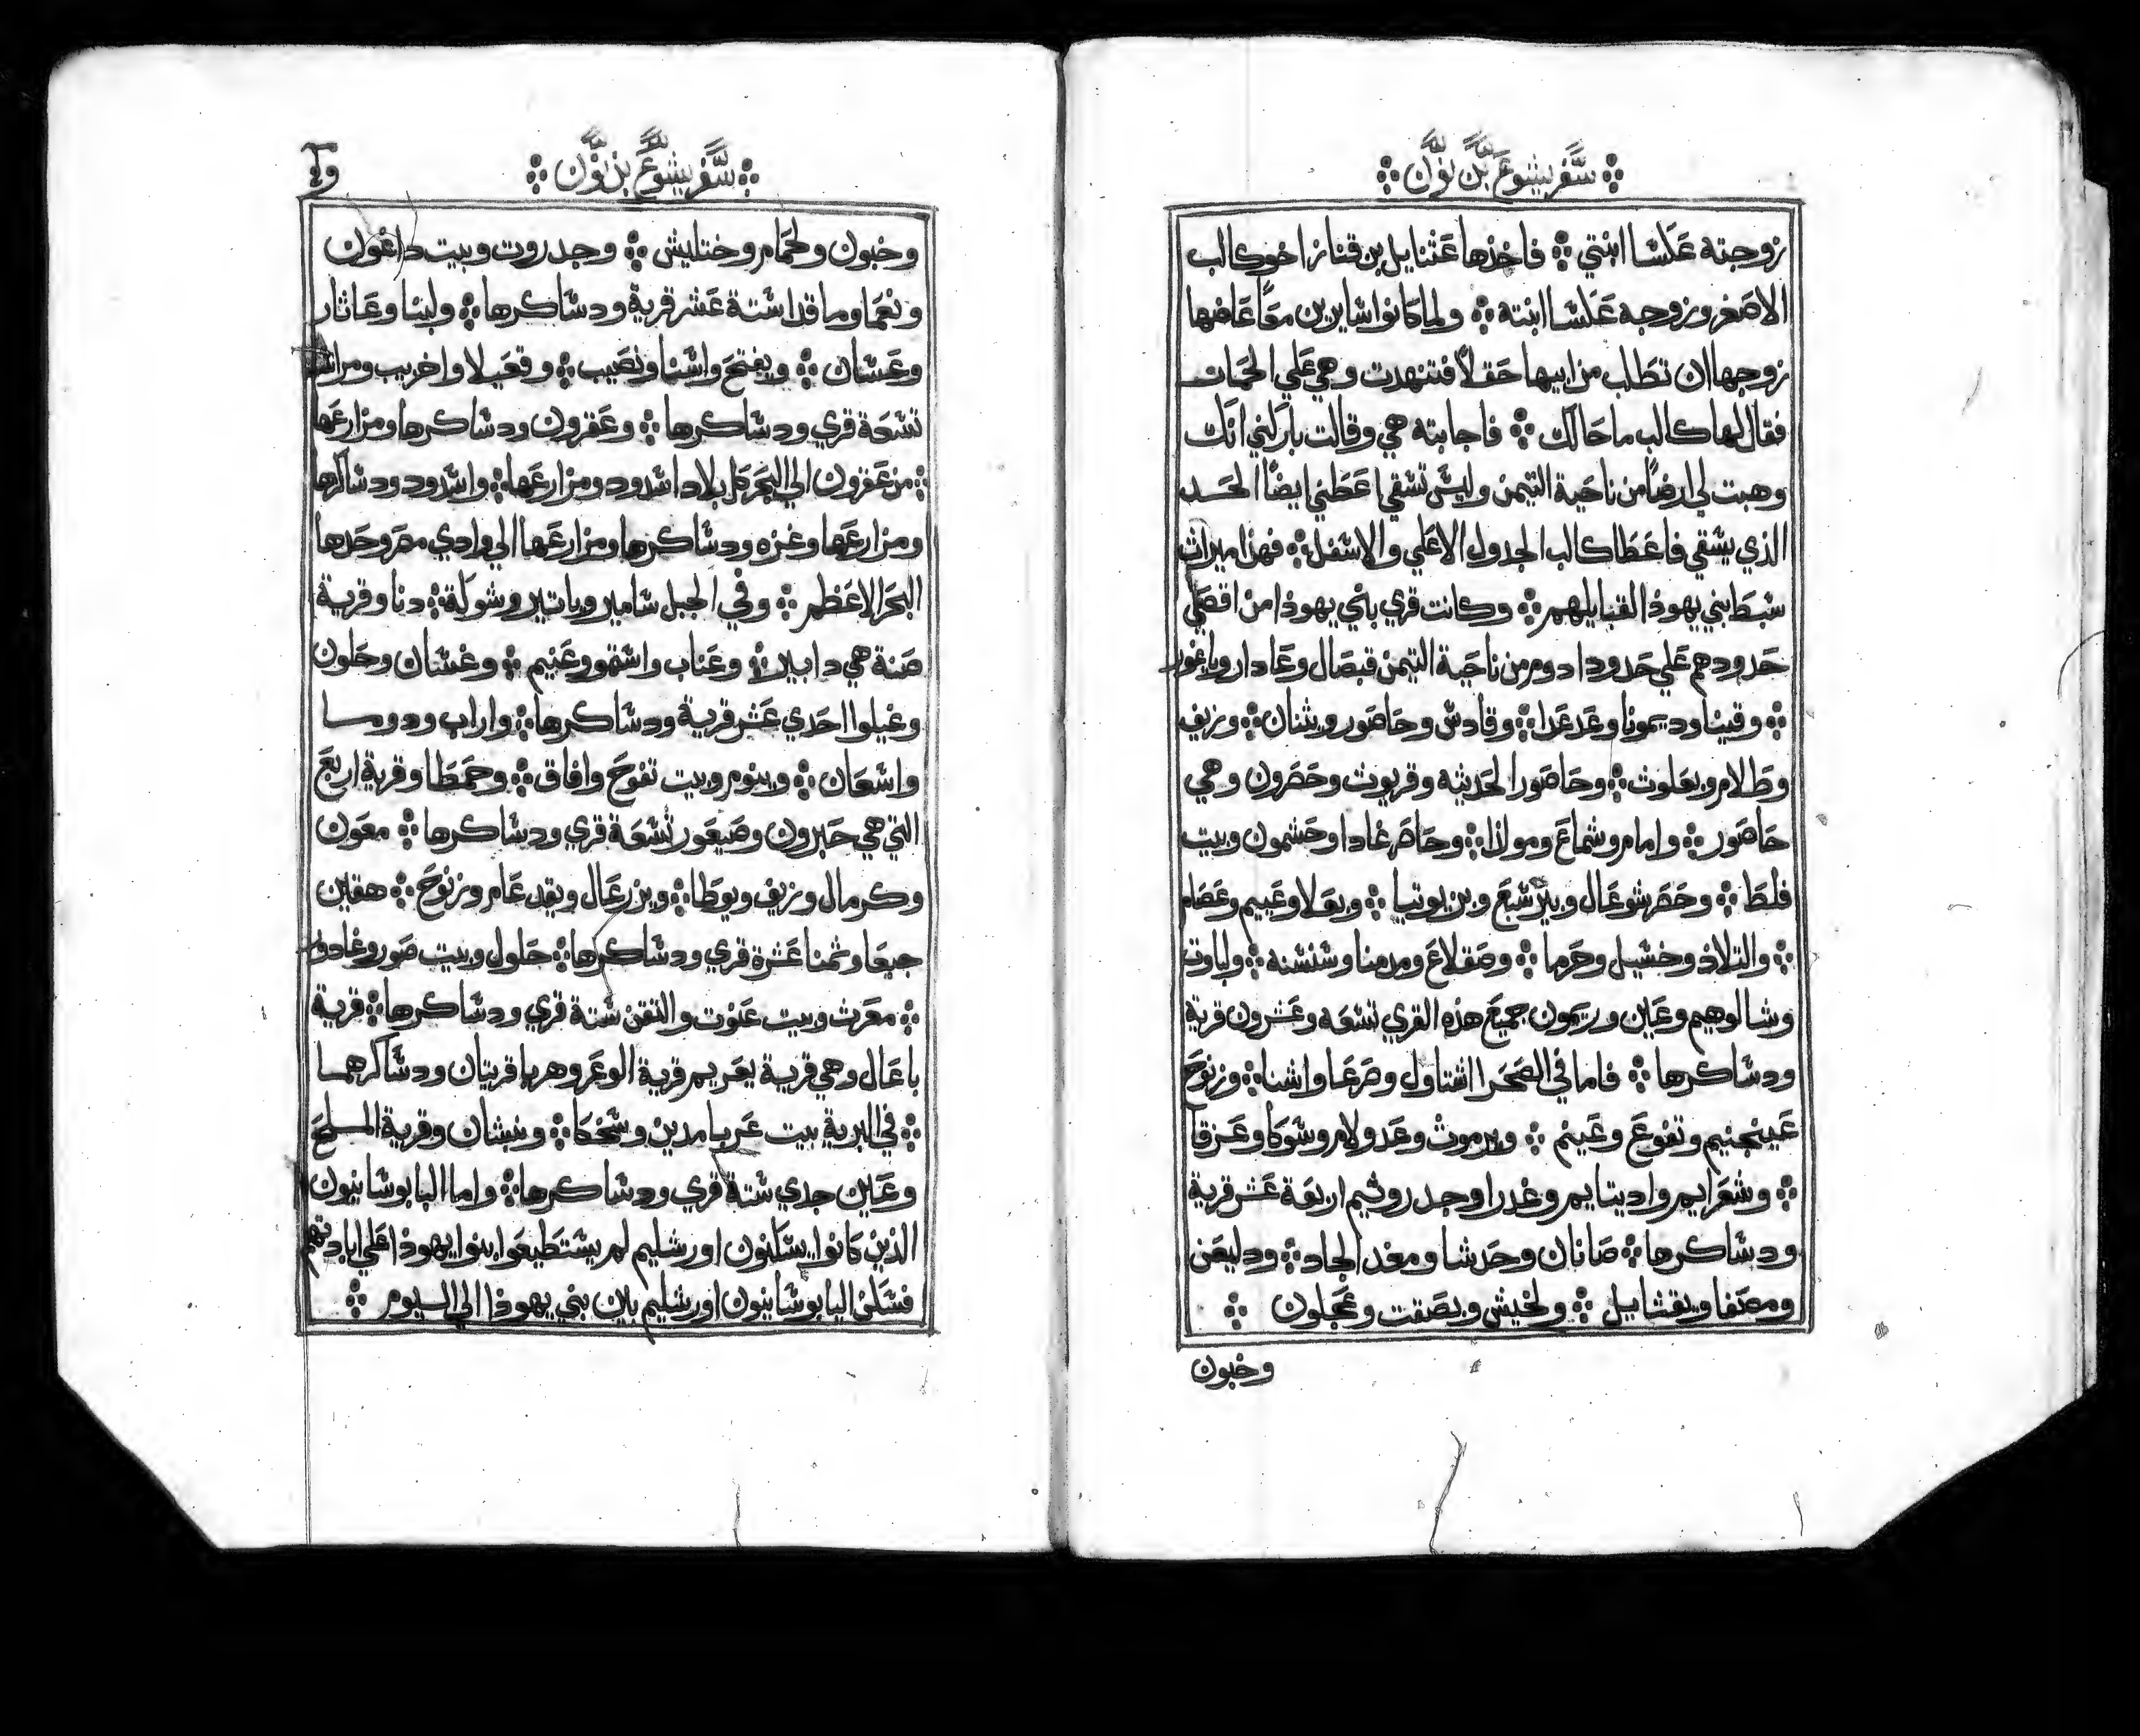 سفر يشوع بن نون
زوجته عكسا ابنتي ❊ فاخذها عثنايل بن قناز اخو كالب
الاصغر وزوجه عكسا ابنته ❊ ولما كانوا سايرين معًا عاضها
زوجها ان تطلب من ابيها حقلاً فتنهدت وهي علي الحمات
فقال لها كالب ما حالك ❊ فاجابته هي وقالت باركني انك
وهبت لي ارضًا من ناحية التيمن وليس تسقي اعطني ايضًا الحسد
الذي يسقي فاعطا كالب الجدول الاعلي والاسفل ❊ فهذا ميراث
سبط بني يهوذا لقبايلهم ❊ وكانت قري باني يهوذا من اقصي
حدودهم علي حدود ادوم من ناحية التيمن قبصال وعادار وياغور
❊ وقينا وديمونا وعدعدا ❊ وقادس وحاصور ويثنان ❊ وزيف
وطالام وبعلوث ❊ وحاصور الحديثه وقريوث وحصرون وهي
حاصور ❊ وامام وشماع ومولاذا ❊ وحاصر غادا وحشمون وبيت
فلط ❊ وحصر شوعال وبير شبع وبن يوتيا ❊ وبعلا وعييم وعصام
❊ والتلاذ وخشيل وحرما ❊ وصقلاغ ومدمنا وسنسنه ❊ ولباوت
وشالوهيم وعاين وريمون جميع هذه القري تسعه وعشرون قرية
ودساكرها ❊ فاما في الصحرا اشتاول وصرعا واشنا ❊ وزنوح
عينجنيم وتفوع وعينم ❊ ويرموث وعدولام وشوكا وعزقا
❊ وشعرايم واديتايم وغدرا وجدروثيم اربعة عشر قرية
ودساكرها ❊ صانان وحدشا ومغدالجاد ❊ ودليعن
ومصفا ويقثايل ❊ ولخيش وبصقت وعجلون ❊
وخبون
سفر يشوع بن نون
وخبون ولحمام وختليش ❊ وجدروت وبيت داغون
ونعما وماقدا ستة عشر قرية ودساكرها ❊ ولبنا وعاثار
وعشان ❊ ويفتح واشنا ونصيب ❊ وقعيلا واخزيب ومراشا
تسعة قري ودساكرها ❊ وعقرون ودساكرها ومزارعها
❊ من عقرون الي البحر كل بلاد اشدود ومزارعها ❊ واشدود ودساكرها
ومزارعها وغزه ودساكرها ومزارعها الي وادي مصر وحدها
البحر الاعظم ❊ وفي الجبل شامير وياتير وشوكة ❊ دنا وقرية
صنة هي دابير ❊ وعناب واشتمو وعنيم ❊ وغشان وحلون
وغيلوا احدي عشر قرية ودساكرها ❊ واراب ودوما
واشعان ❊ وينوم وبيت تفوح وافاق ❊ وحمطا وقرية اربع
التي هي حبرون وصيعور تسعة قري ودساكرها ❊ معون
وكرمال وزيف ويوطا ❊ ويزرعال ويقدعام وزنوح ❊ هقاين
جبعا وثمنا عشرة قري ودساكرها ❊ حلول وبيت صور وغادور
❊ معرث وبيت عنوت والتقن ستة قري ودساكرها ❊ قرية
باعال وهي قرية يعريم قرية الوعر وهربا قريتان ودساكرهما
❊ في البرية بيت عربا مدين وسخكا ❊ ونبشان وقرية الملح
وعاين جدي ستة قري ودساكرها ❊ واما اليابوسانيون
الذين كانوا يسكنون اورشليم لم يستطيعوا بنوا يهوذا علي ابادتهم
فسكن اليابوسانيون اورشليم بين بني يهوذا الي اليوم ❊